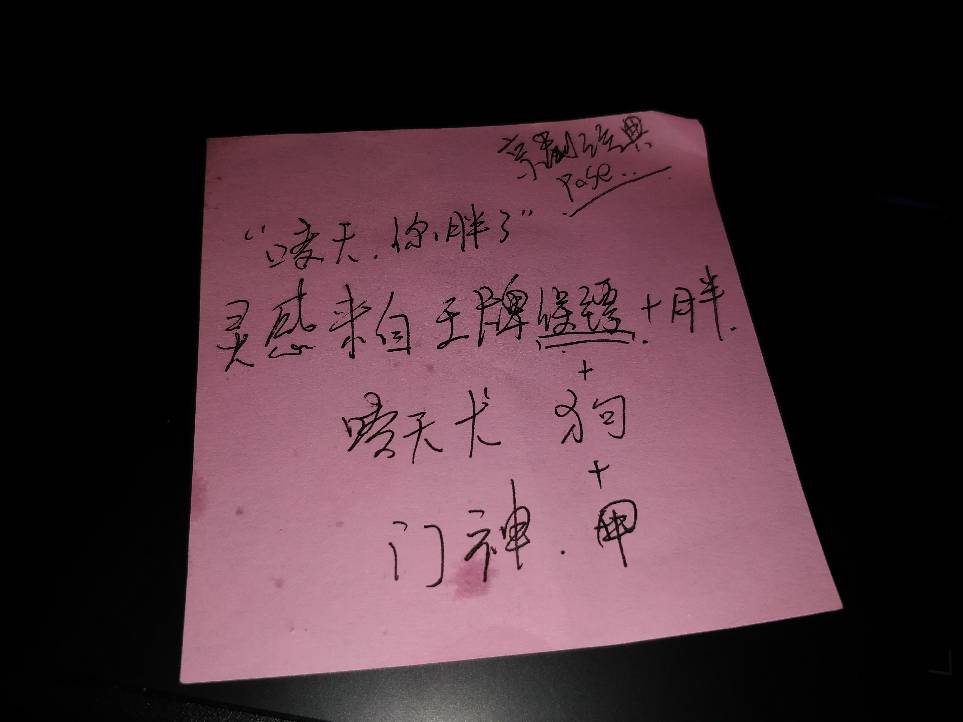 京剧经典
pose...
“哮天,你胖了”
灵感来自王牌保镖+胖.
+
哮天犬 狗
+
门神.